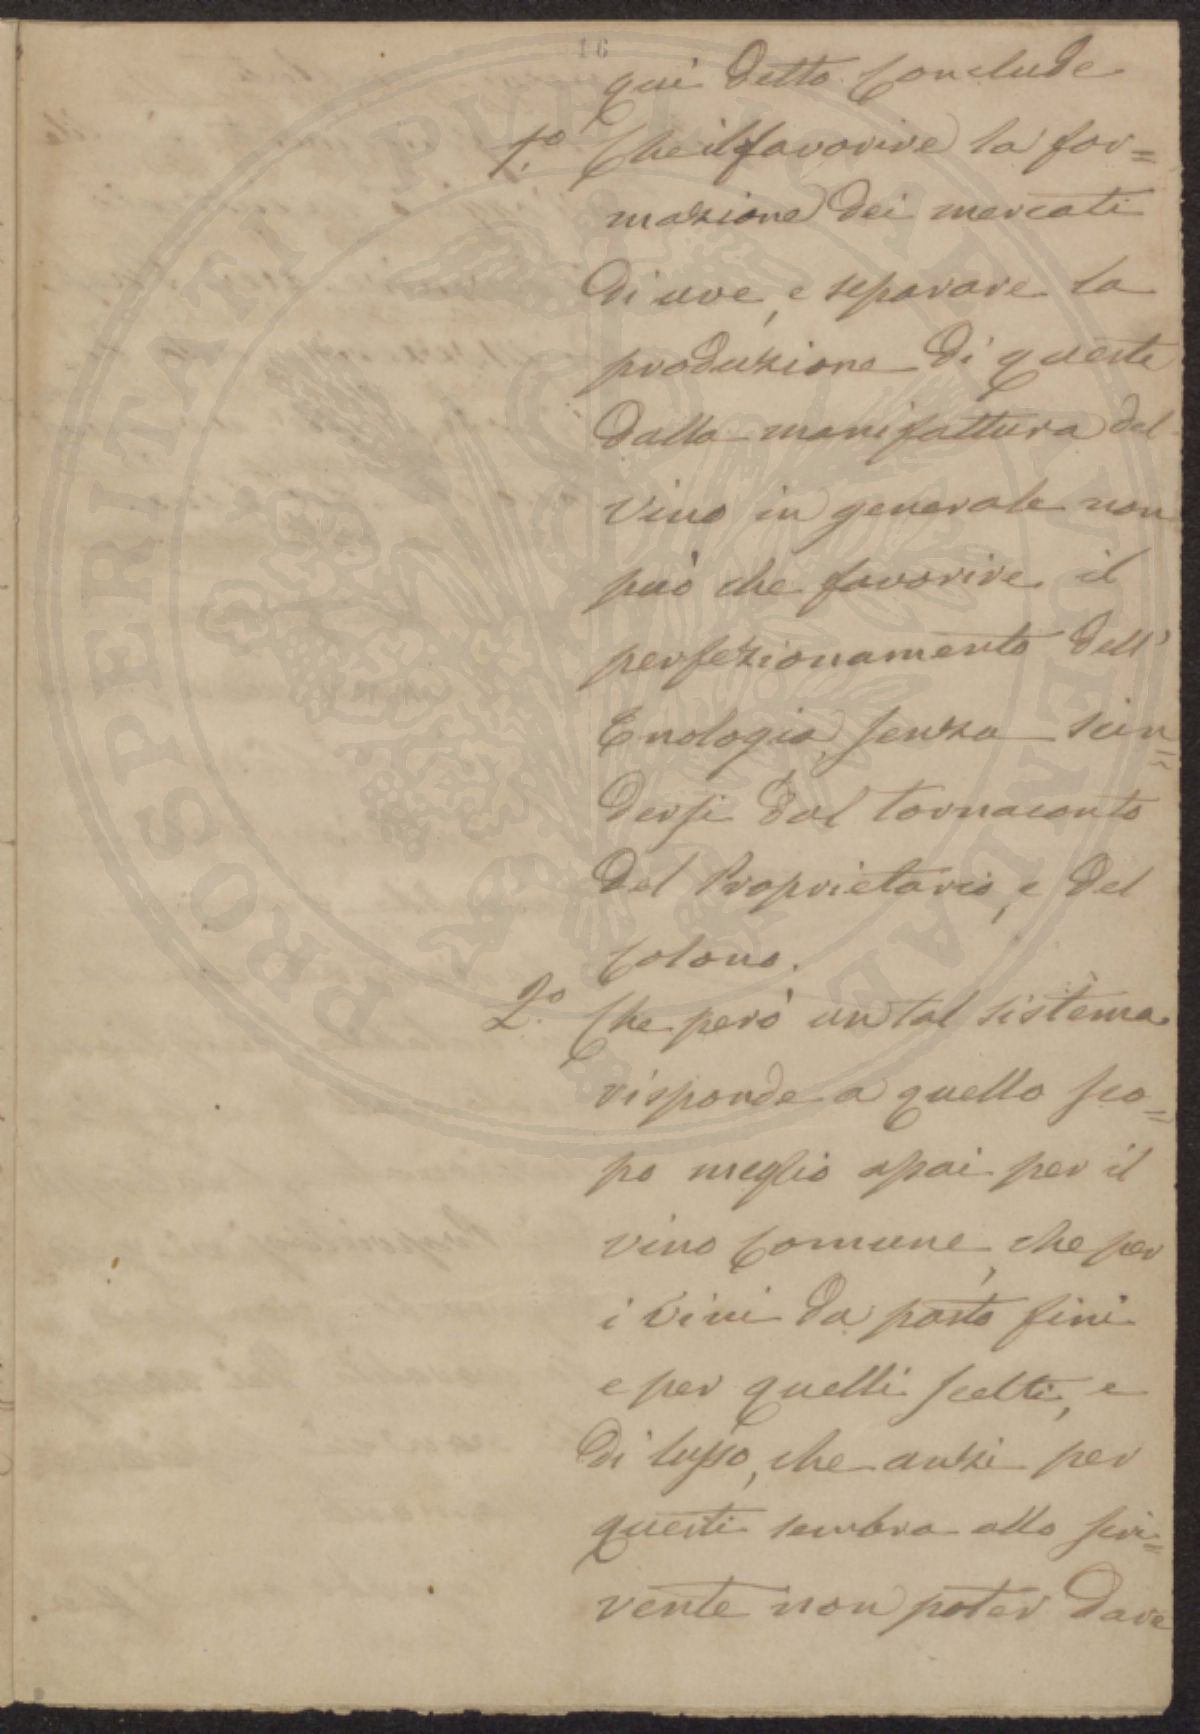 16
qui detto Conclude
1.º Che il favorire la for=
mazione dei mercati
di uve, e separare la
produzione di queste
dalla manifattura del
vino in generale non
può che favorire il
perfezionamento dell'
Enologia, senza scin=
dersi dal tornaconto
del Proprietario, e del
Colono.
2.º Che però un tal sistema
risponde a quello sco=
po meglio assai per il
vino Comune, che per
i vini da pasto fini
e per quelli scelti, e
di lusso, che anzi per
questi sembra allo scri=
vente non poter dare
PROSPERITATI PVBLICAE AVGENDAE